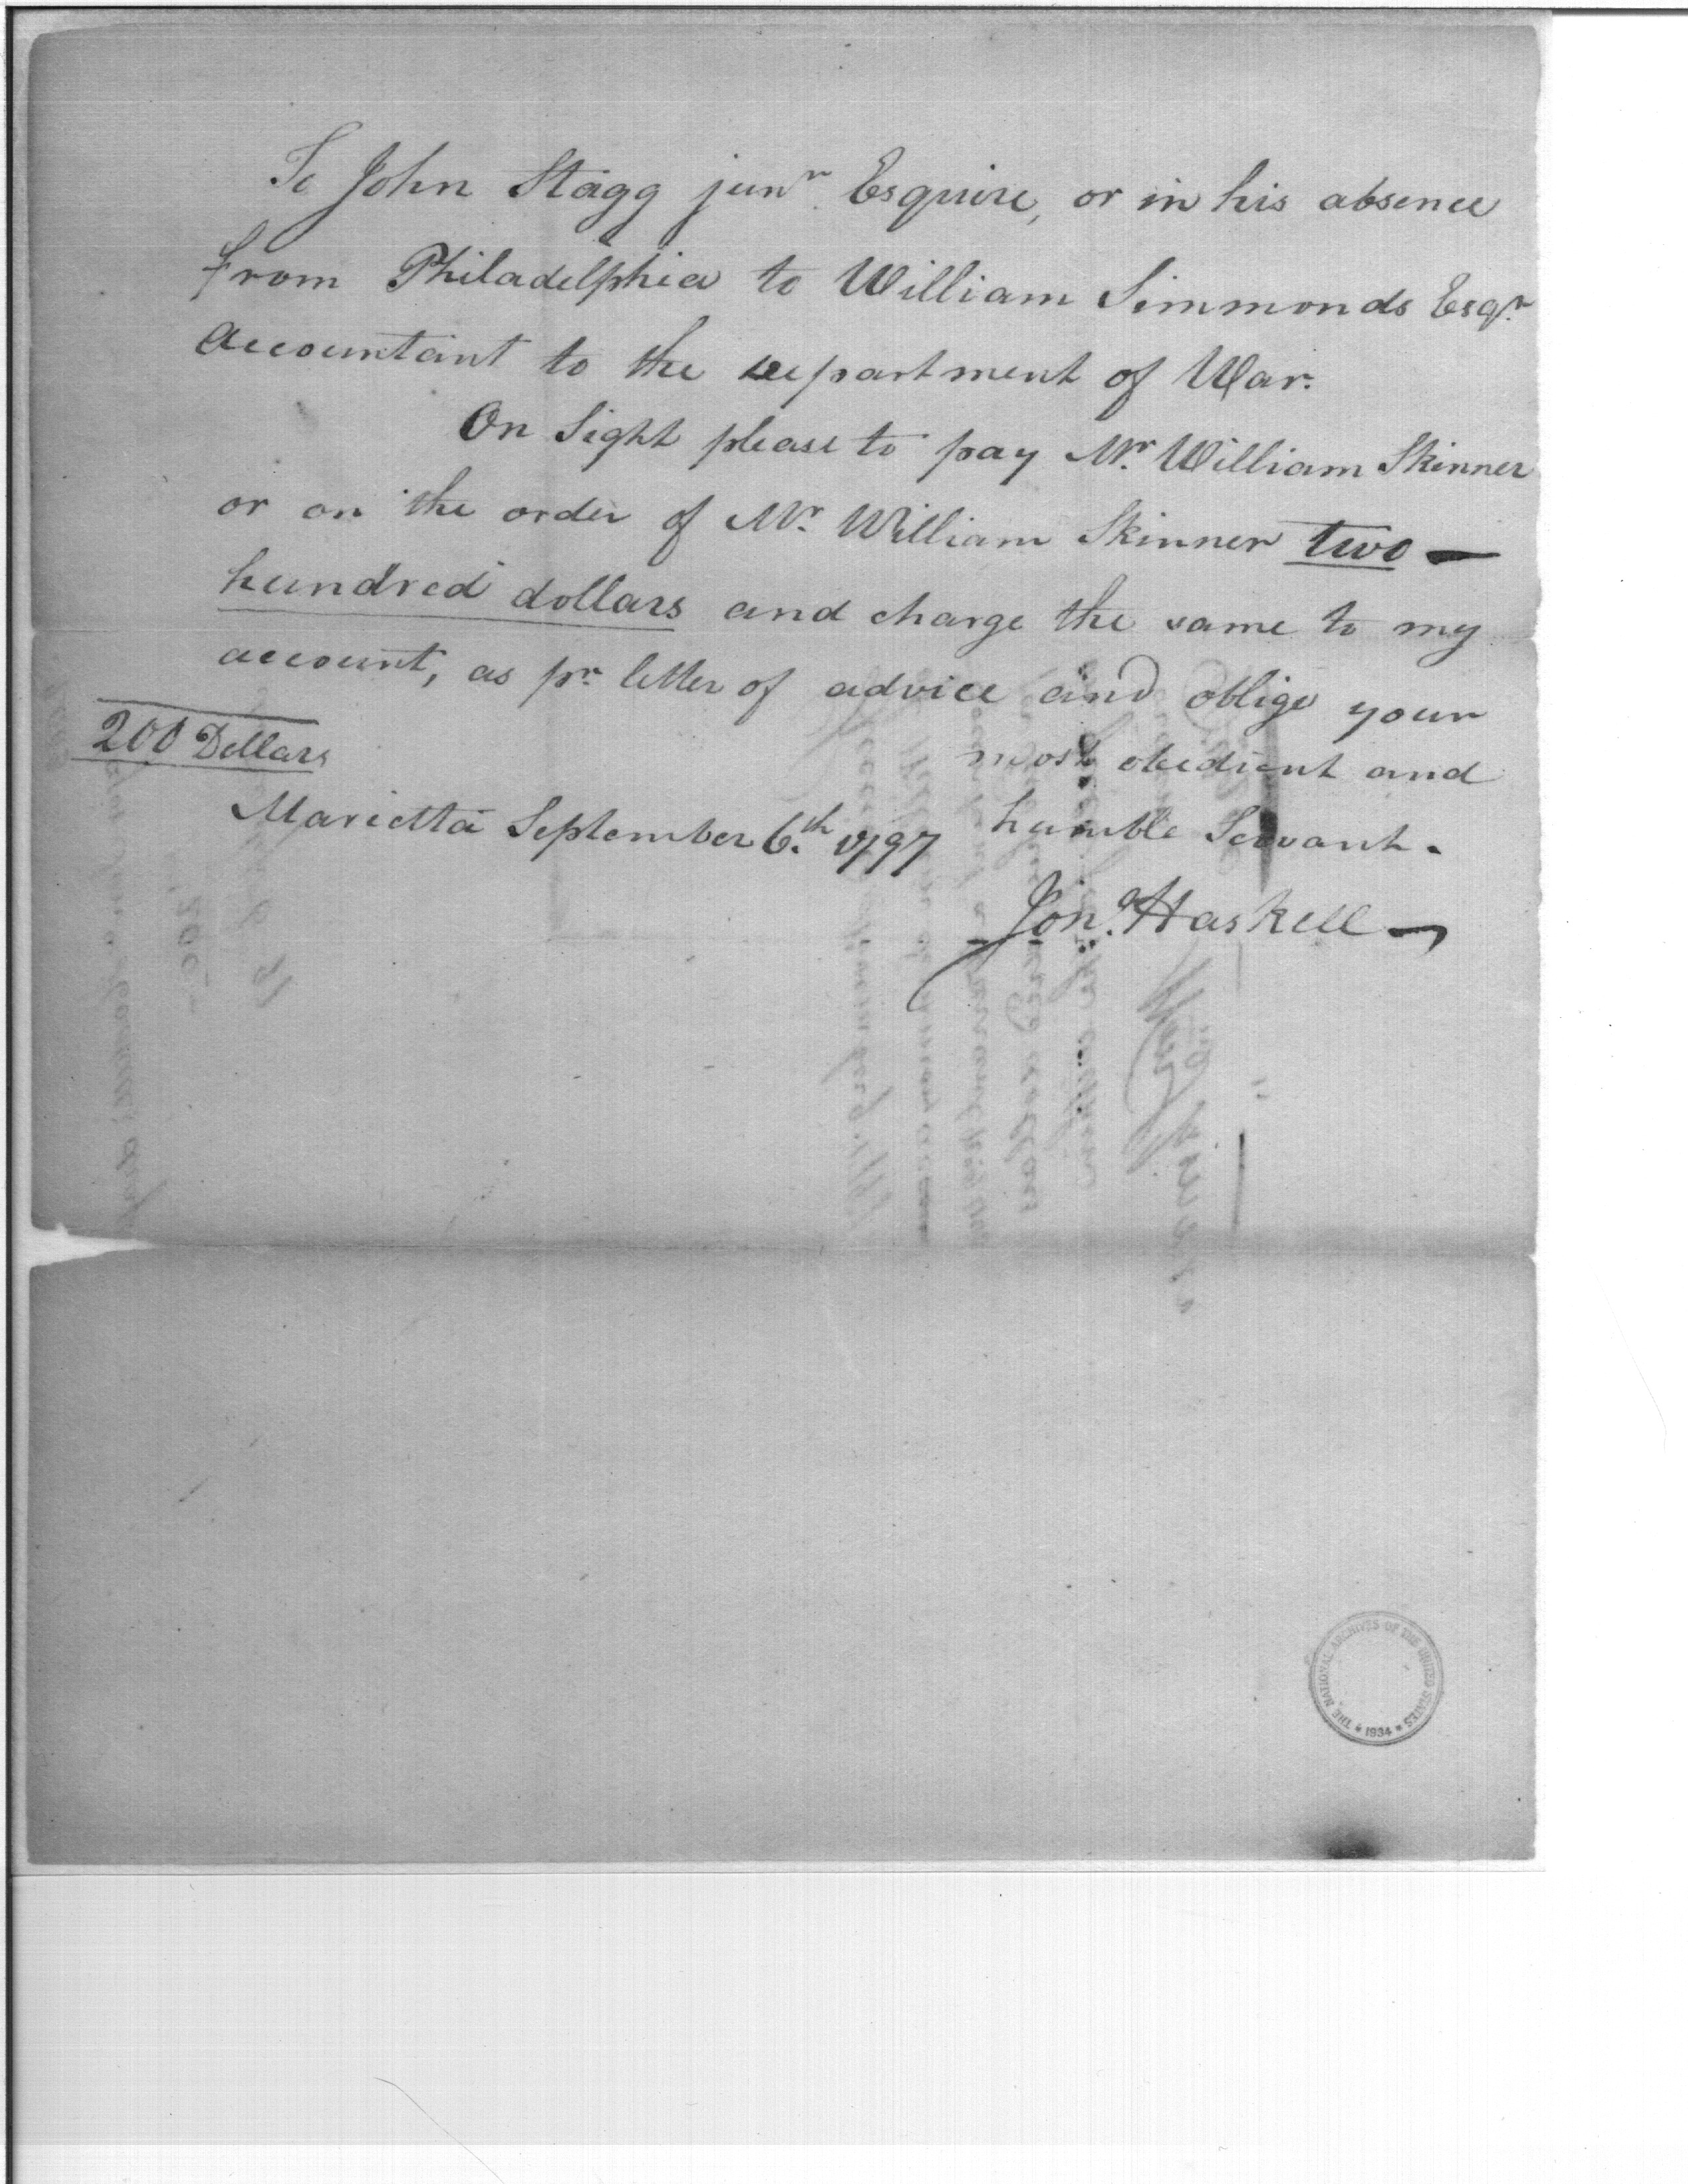 To John Stagg junr. Esquire, or in his absence
from Philadelphia to William Simmonds Esqr.
Accountant to the department of War.
On Sight please to pay Mr. William Skinner
or on the order of Mr. William Skinner two —
hundred dollars and charge the same to my
account, as pr. letter of advice and oblige your
200 Dollars
most obedient and
Marietta September 6.th 1797 humble Servant.
Jon.a Haskell —
THE NATIONAL ARCHIVES OF THE UNITED STATES
* 1934 *